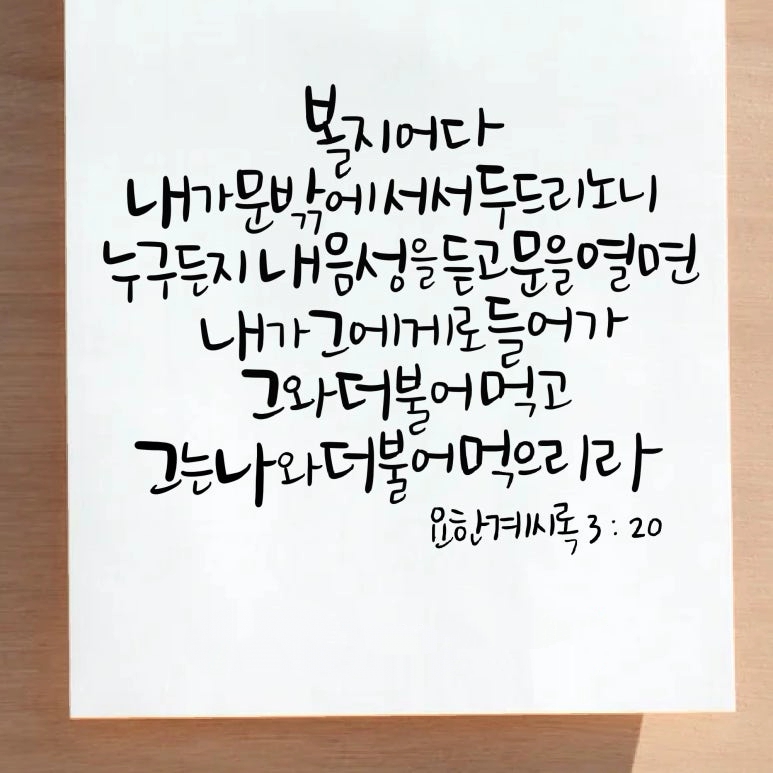 볼지어다
내가 문 밖에 서서 두드리노니
누구든지 내 음성을 듣고 문을 열면
내가 그에게로 들어가
그와 더불어 먹고
그는 나와 더불어 먹으리라
요한계시록 3 : 20